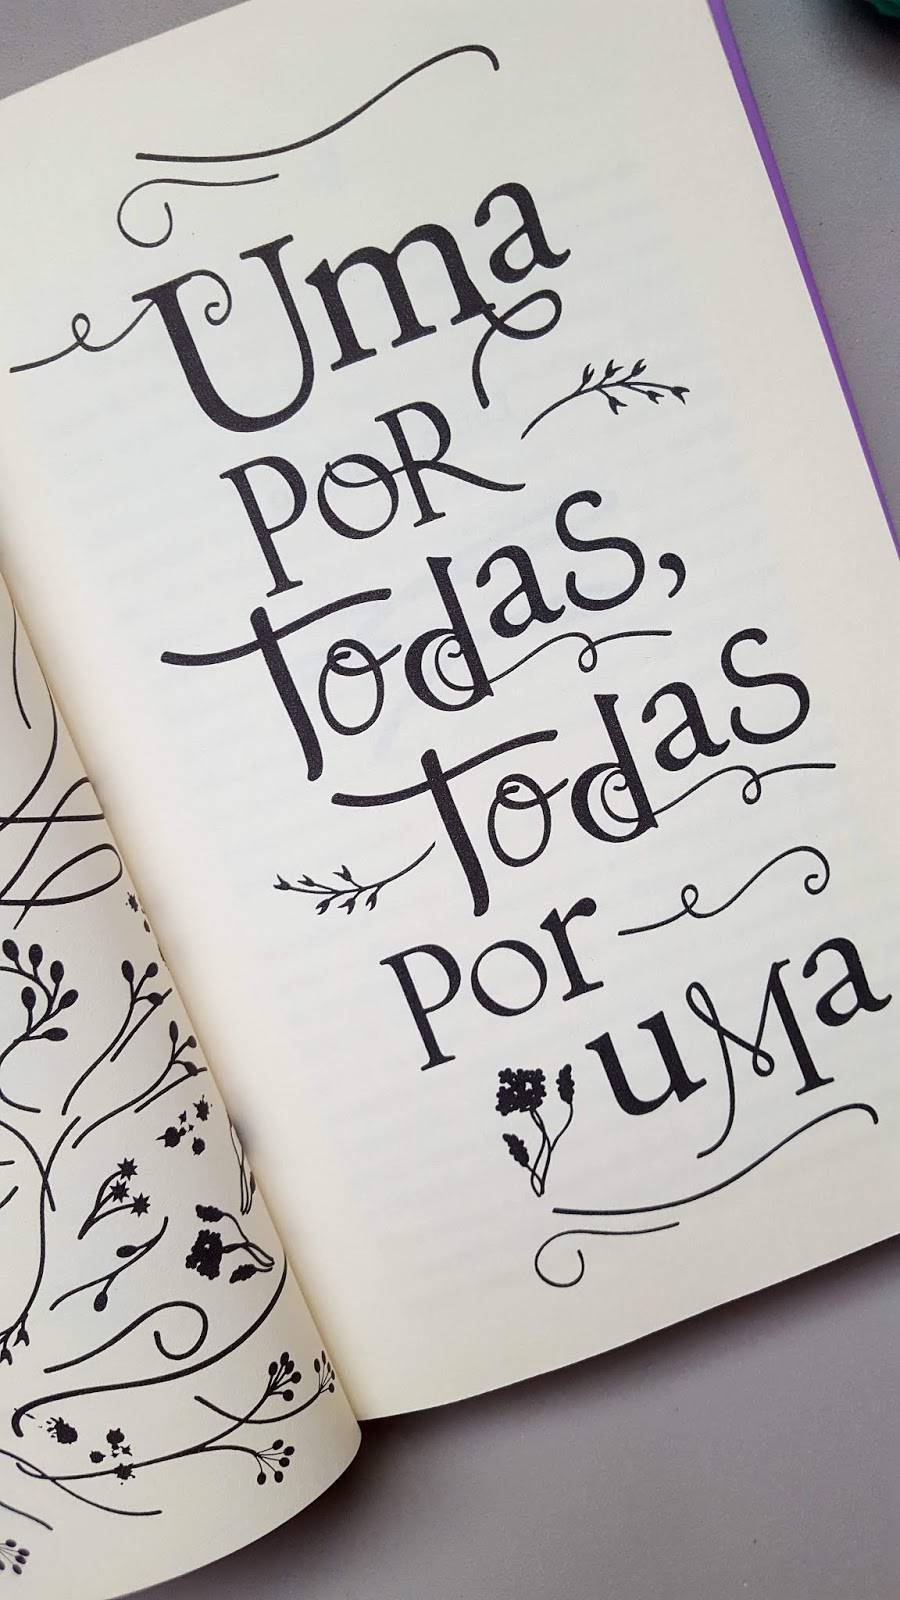 Uma
POR
Todas,
Todas
Por
uMa